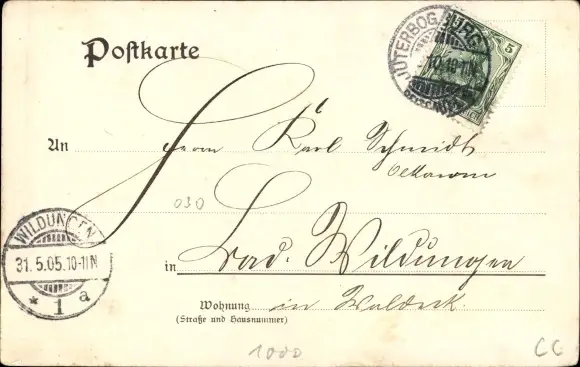 Postkarte
JÜTERBOG
BURG
10-11N
5
An Herrn Karl Schmidt
Oekonom
030
WILDUNGEN
31.5.05.10-11N
* 1 a
in Bad. Wildungen
Wohnung in Waldeck.
(Straße und Hausnummer)
1000
CC